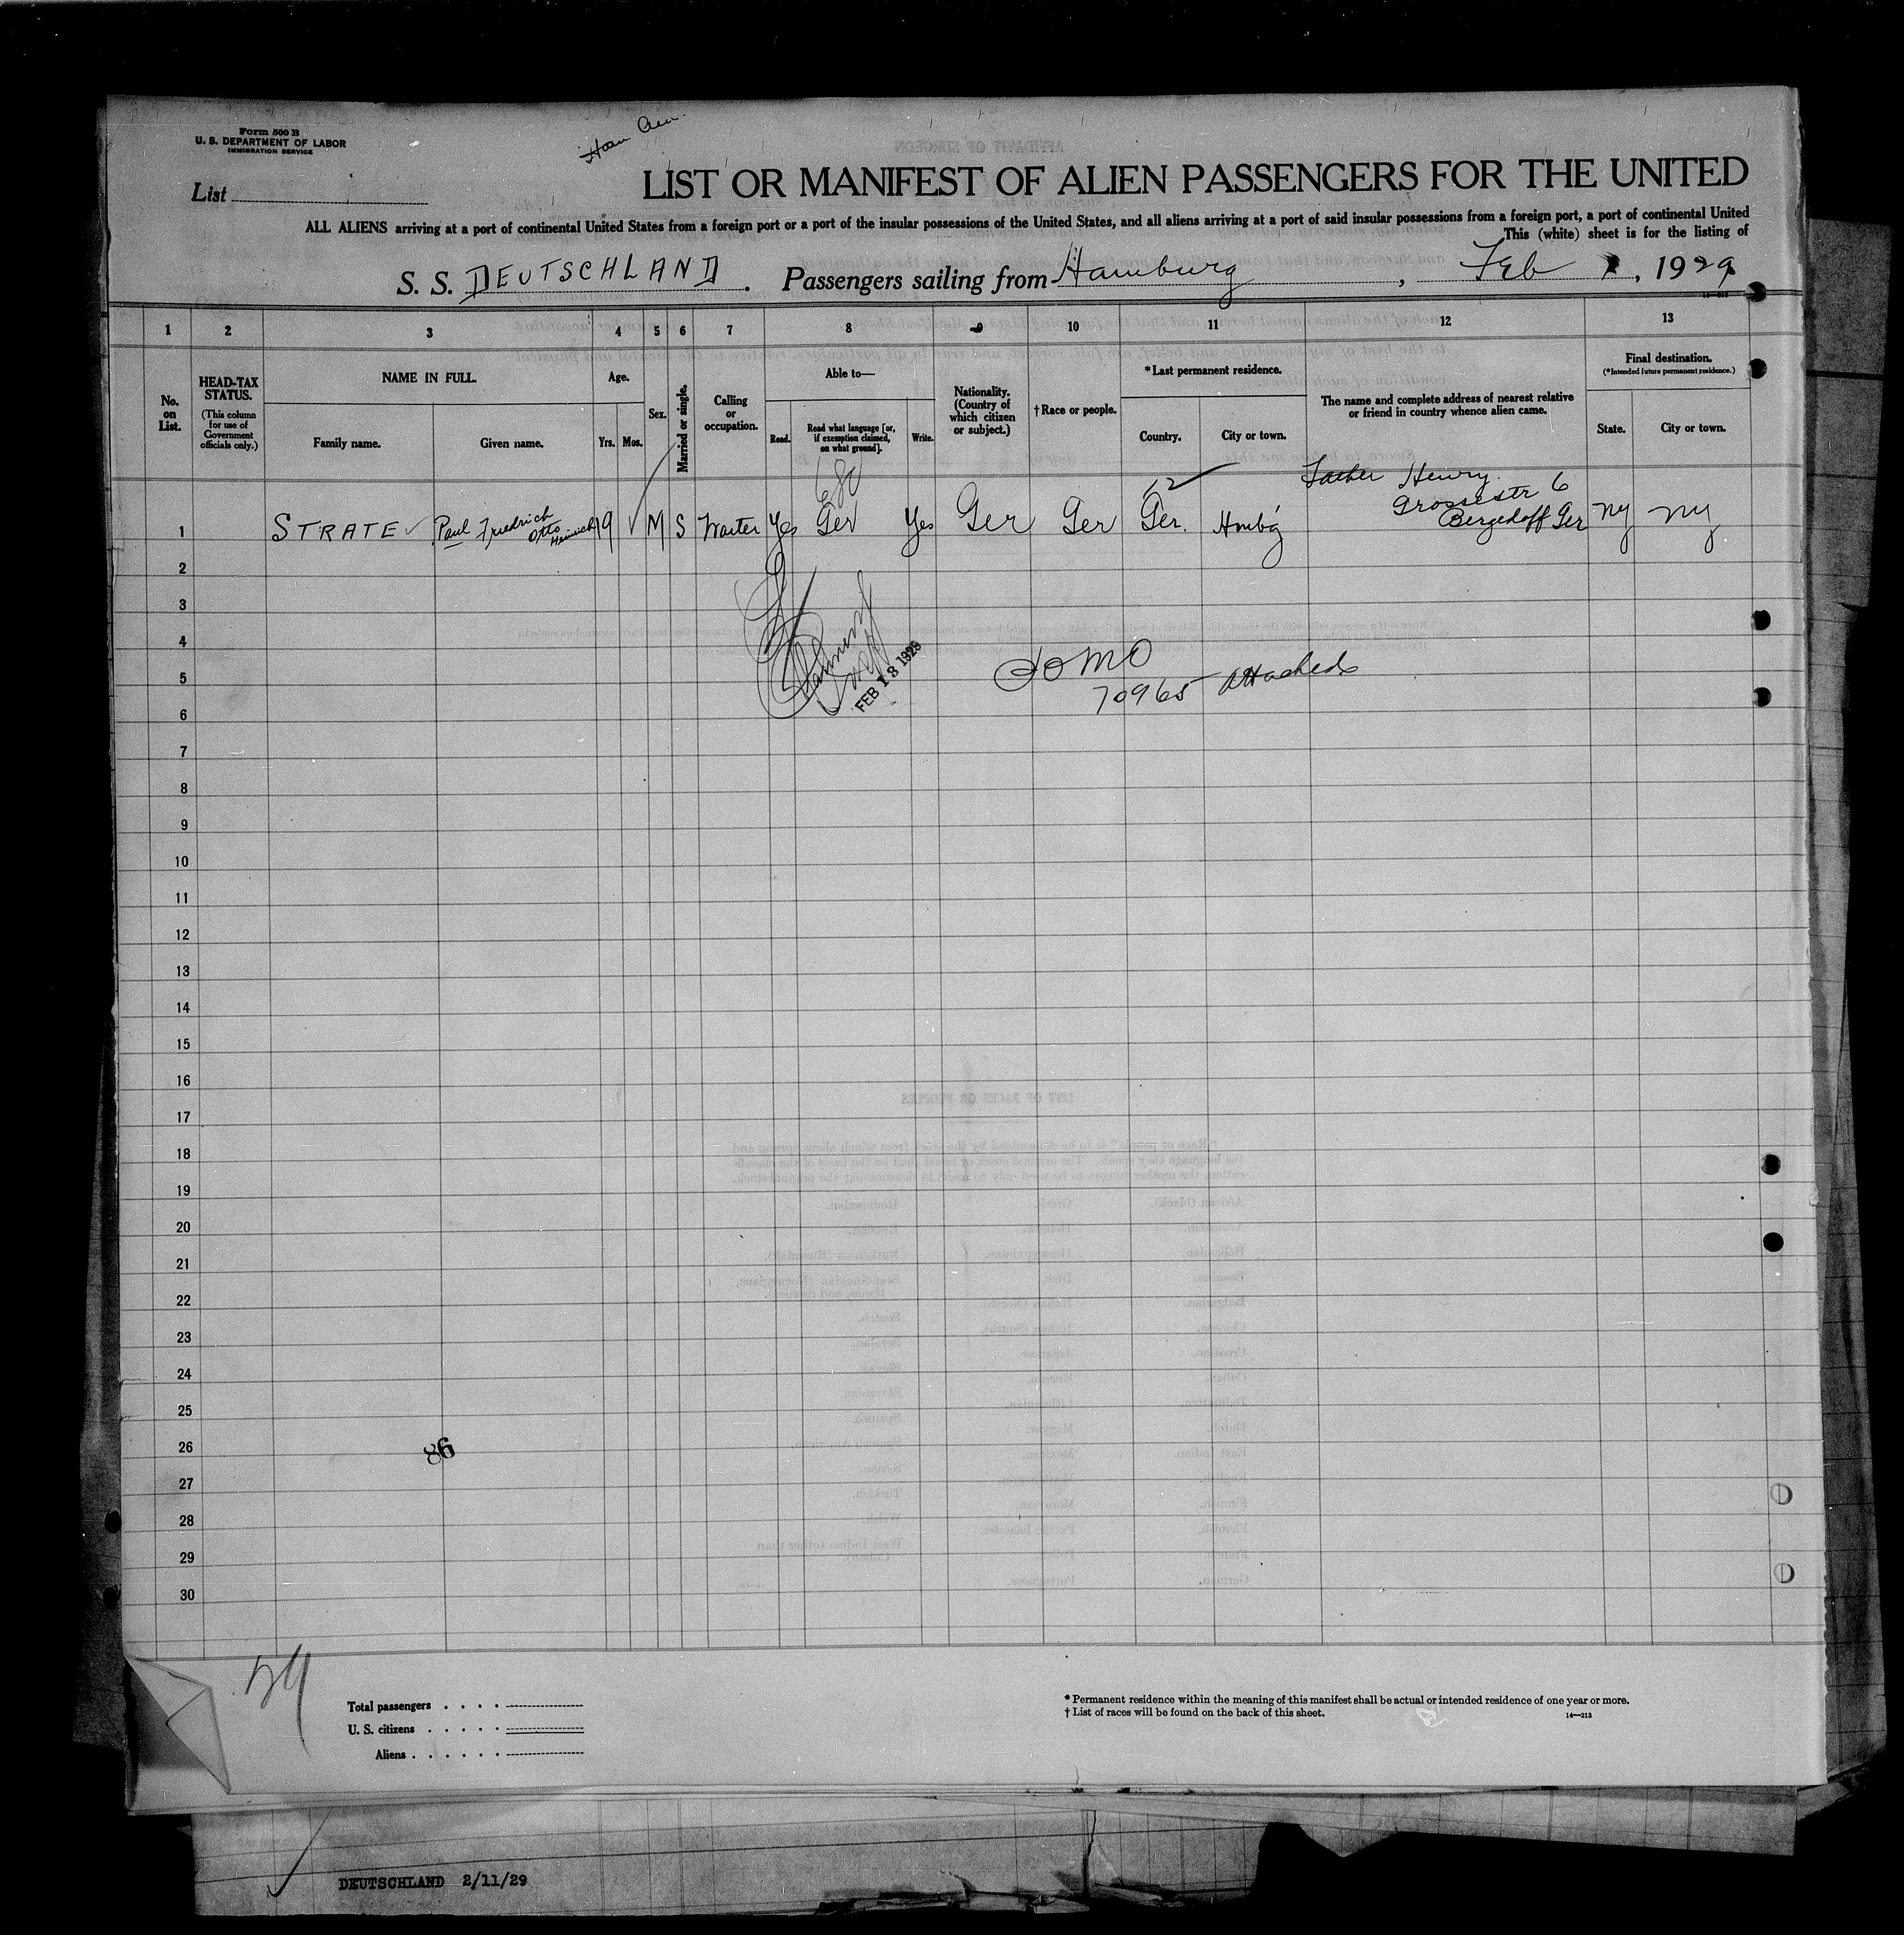 Form 500 B
U. S. DEPARTMENT OF LABOR
IMMIGRATION SERVICE
List
Ham Am.
LIST OR MANIFEST OF ALIEN PASSENGERS FOR THE UNITED
ALL ALIENS arriving at a port of continental United States from a foreign port or a port of the insular possessions of the United States, and all aliens arriving at a port of said insular possessions from a foreign port, a port of continental United
This (white) sheet is for the listing of
S. S. DEUTSCHLAND. Passengers sailing from Hamburg, Feb 1, 1929
1 2 3 4 5 6 7 8 9 10 11 12 13
No. on List.
HEAD-TAX STATUS.
(This column for use of Government officials only.)
NAME IN FULL.
Family name.
Given name.
Age.
Yrs. Mos.
Sex.
Married or single.
Calling or occupation.
Able to—
Read.
Read what language [or, if exemption claimed, on what ground].
Write.
Nationality. (Country of which citizen or subject.)
†Race or people.
*Last permanent residence.
Country.
City or town.
The name and complete address of nearest relative or friend in country whence alien came.
Final destination.
(*Intended future permanent residence.)
State.
City or town.
680
12
Father Henry
Grossestr 6
Bergedoff Ger
1 STRATE Paul Friedrich Otto Heinrich 19 M S Waiter Yes Ger Yes Ger Ger Ger. Hmbg NY NY
2
3
4
5
6
FEB 13 1929
70965 attached
7
8
9
10
11
12
13
14
15
16
17
18
19
20
21
22
23
24
25
26
86
27
28
29
30
Total passengers
U. S. citizens
Aliens
* Permanent residence within the meaning of this manifest shall be actual or intended residence of one year or more.
† List of races will be found on the back of this sheet.
14—213
DEUTSCHLAND 2/11/29